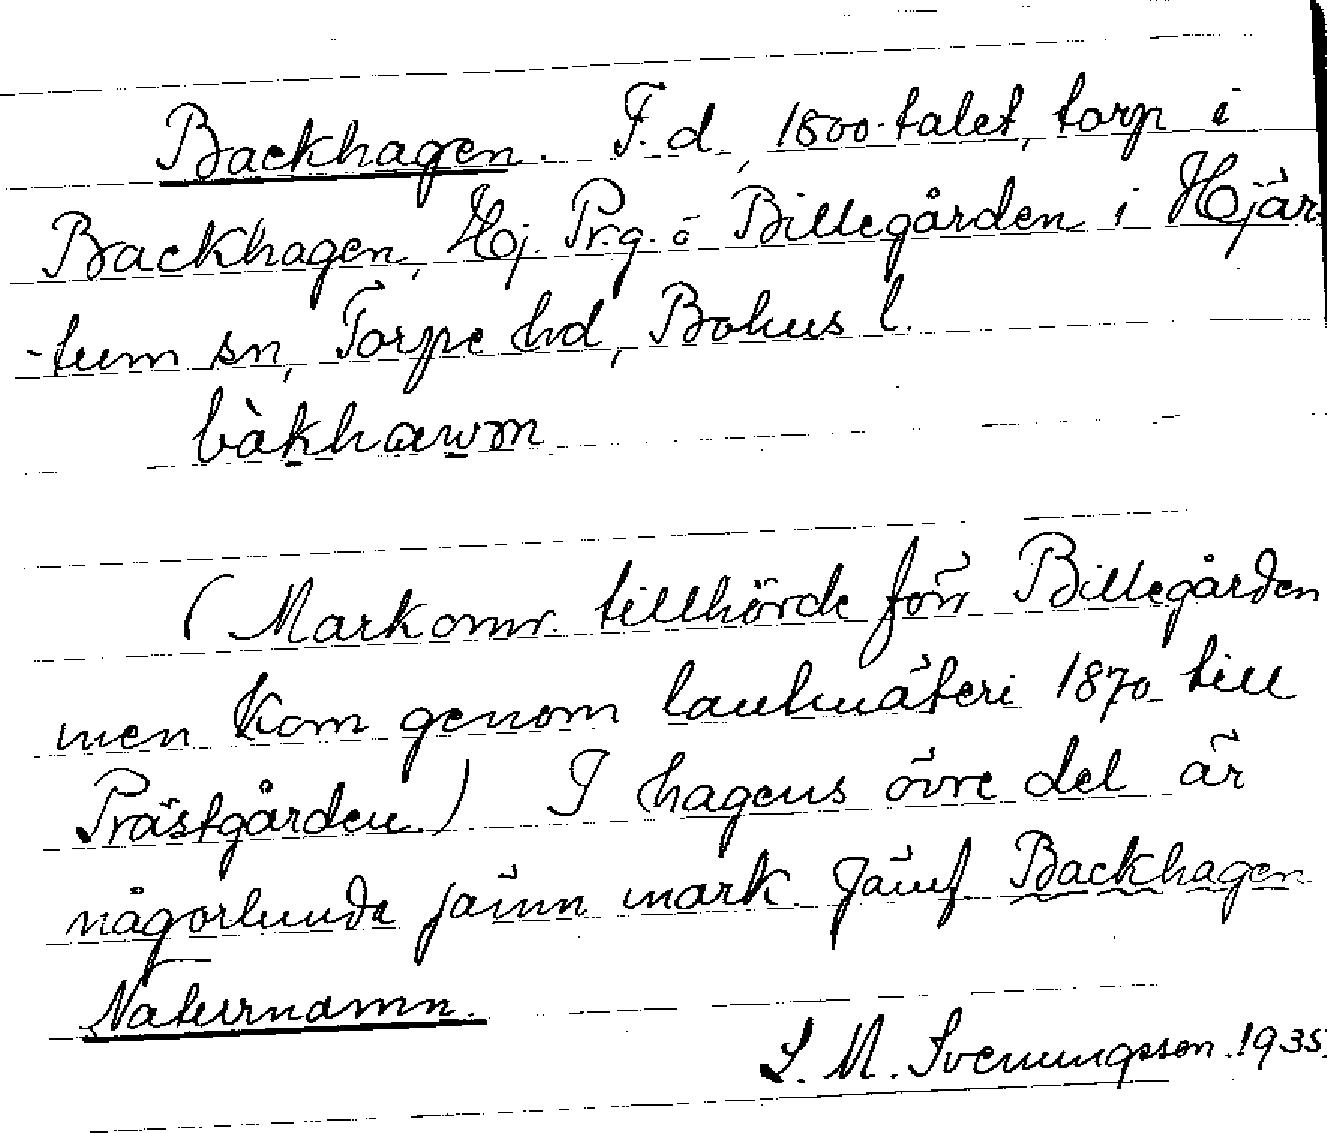 Backhagen. F. d, 1800-talet, torp i
Backhagen, Hj. Pr.g. o Billegården i Hjär
-tum sn, Torpe hd, Bohus l.
bàkhawən
(Markomr. tillhörde förr Billegården
men kom genom lantmäteri 1870 till
Prästgården) I hagens övre del är
någorlunda jämn mark. Jämf Backhagen
Naturnamn.
S. M. Svenungsson. 1935.